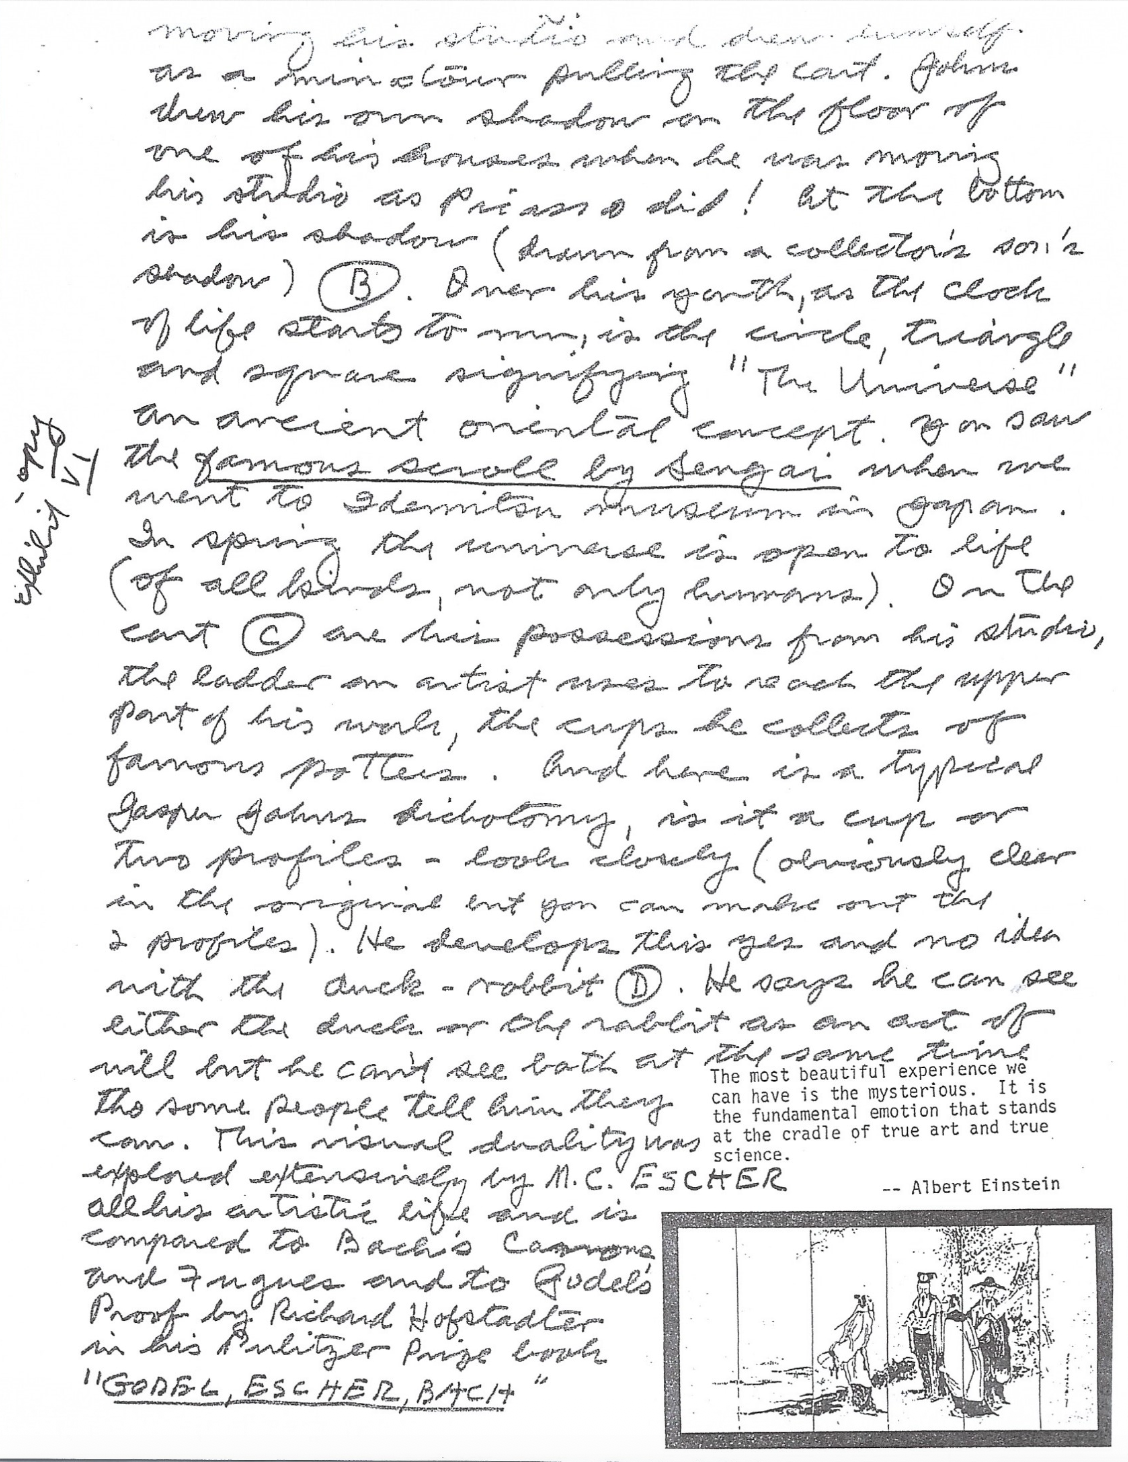 moving his studio and drew himself
as a minotour pulling the cart. Johns
drew his own shadow on the floor of
one of his houses when he was moving
his studio as Picasso did! At the bottom
is his shadow (drawn from a collector's son's
shadow) B. Over his youth, as the clock
of life starts to run, is the circle, triangle
and square signifying "The Universe"
an ancient oriental concept. You saw
the famous scroll by Sengai when we
went to Idemitsu museum in Japan.
In spring the universe is open to life
(of all kinds, not only humans). On the
cart C are his possessions from his studio,
the ladder an artist uses to reach the upper
part of his work, the cups he collects of
famous potters. And here is a typical
Jasper Johns dichotomy, is it a cup or
two profiles - look closely (obviously clear
in the original but you can make out the
2 profiles). He develops this yes and no idea
with the duck-rabbit D. He says he can see
either the duck or the rabbit as an act of
will but he can't see both at the same time
tho some people tell him they
can. This visual duality was
explored extensively by M.C. ESCHER
all his artistic life and is
compared to Bach's Cannons
and Fugues and to Godel's
Proof by Richard Hofstadter
in his Pulitzer Prize book
"GODEL, ESCHER, BACH"
Exhibit VI
The most beautiful experience we
can have is the mysterious. It is
the fundamental emotion that stands
at the cradle of true art and true
science.
-- Albert Einstein